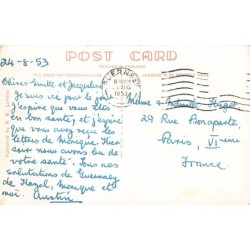 24-8-53
POST CARD
GUERNSEY
1953
Chères Ginette et Jacqueline
Je suis ici pour le jour
j'espère que vous êtes
en bon santé, et j'espère
que vous avez reçu les
lettres de Monique. Hier
soir nous avons bu de
votre santé. Tous nos
salutations de Guernsey
de Hazel, Monique et
moi. Austin
Mdme &
29 Rue Bonaparte,
Paris, VI
France.